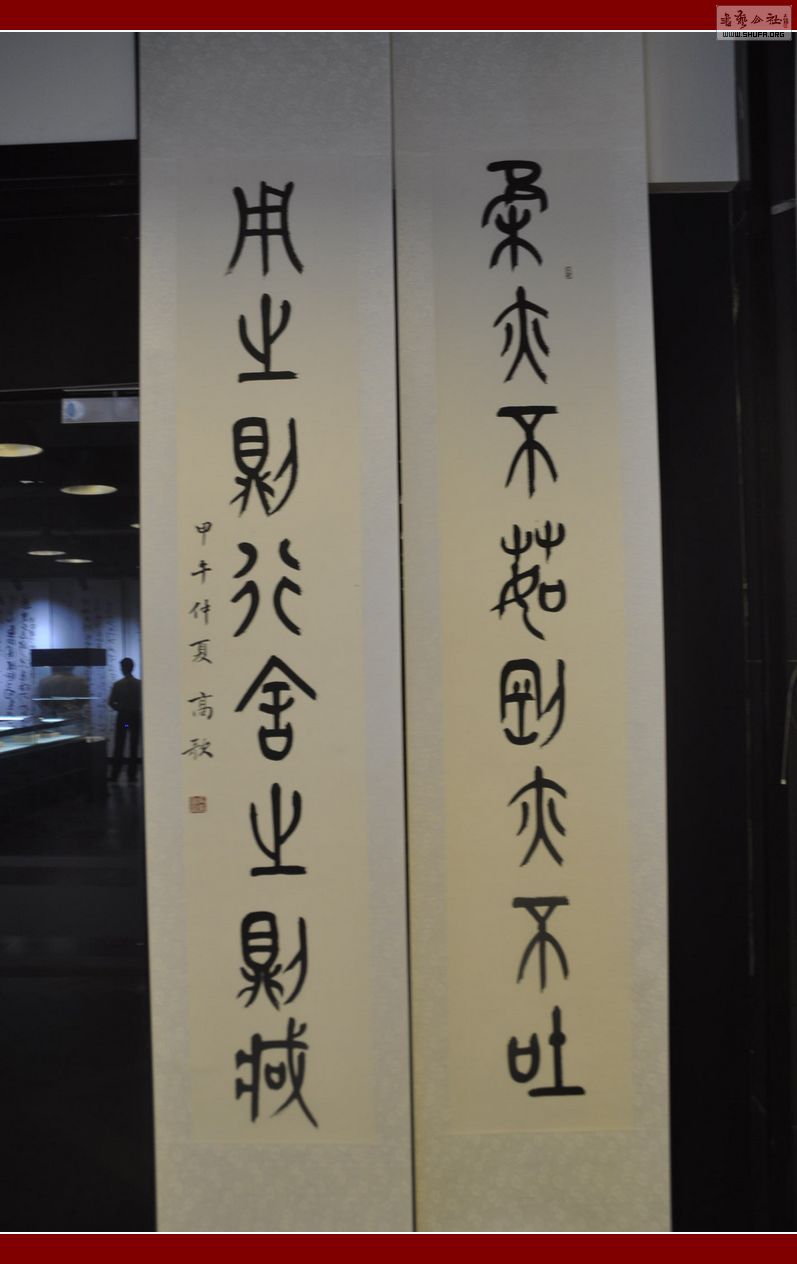 柔亦不茹剛亦不吐
用之則行舍之則臧
甲午仲夏 高歌
書藝公社
WWW.SHUFA.ORG